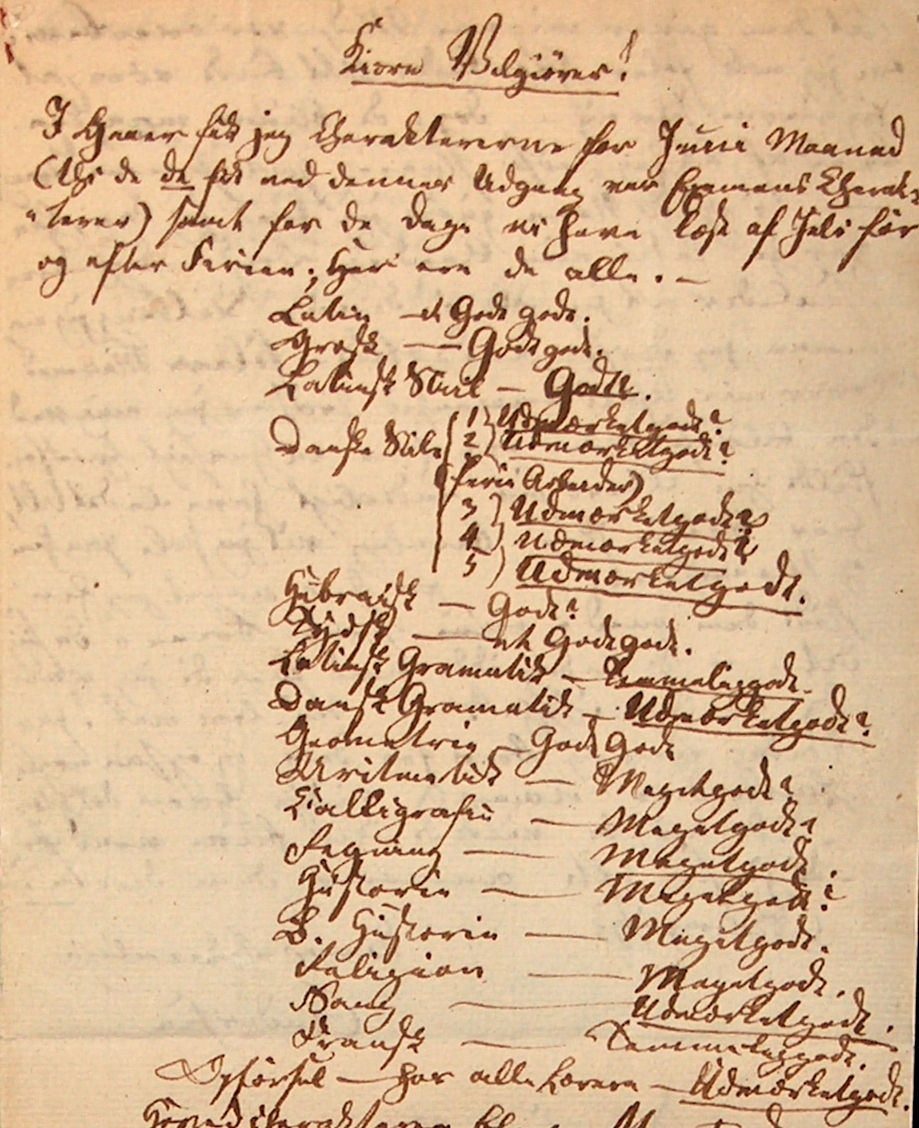 Kjære Velgjører!
I Gaaer fik jeg Charaktererne for Junii Maaned
(thi de de fik ved dennes Udgang var Examens Charak-
"terer) samt for de Dage vi have læst af Juli før
og efter Ferien; her ere de alle. —
Latin — et Godt godt.
Græsk — Godt godt.
Latinsk Stiil — Godt.
Danske Stile 1) Udmærketgodt?
2) Udmærketgodt?
(ferie Arbeider)
3) Udmærketgodt?
4) Udmærketgodt?
5) Udmærketgodt.
Hebraisk — Godt?
Tydsk — et Godt godt.
Latinsk Gramatik — Temmeliggodt.
Dansk Gramatik — Udmærketgodt?
Geometrie — Godt Godt
Aritmetik — Megetgodt?
Kalligrafie — Megetgodt?
Tegning — Megetgodt.
Historie — Megetgodt?
B. Historie — Megetgodt.
Religion — Megetgodt.
Sang — Udmærketgodt.
Fransk — Temmeliggodt.
Opførsel — har alle Lærere — Udmærketgodt.